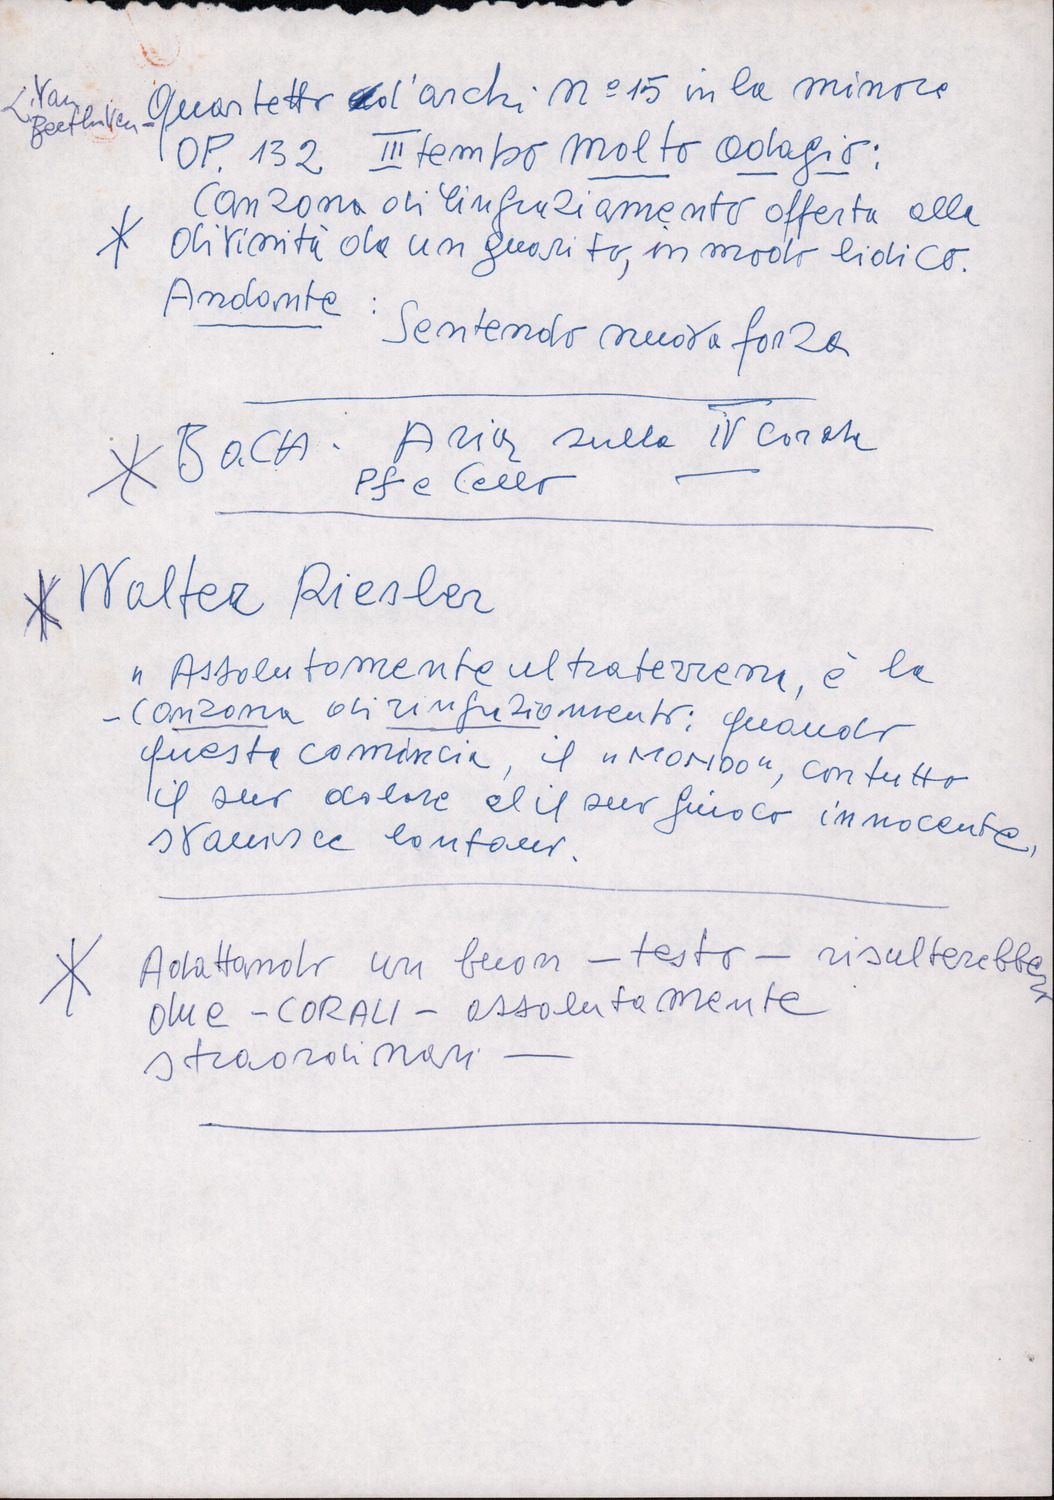 L. Van
Beethoven - Quartetto d'archi n° 15 in la minore
OP. 132 III tempo molto adagio:
Canzona di ringraziamento offerta alla
divinità da un guarito, in modo lidico.
Andante :
Sentendo nuova forza
BACH. Aria sulla IV corda
Pf e Cello
Walter Riesler
" Assolutamente ultraterrena, è la
- Canzona di ringraziamento: quando
questa comincia, il "MONDO", con tutto
il suo dolore ed il suo giuoco innocente,
svanisce lontano.
Adattando un buon - testo - risulterebbero
due - CORALI - assolutamente
straordinari —